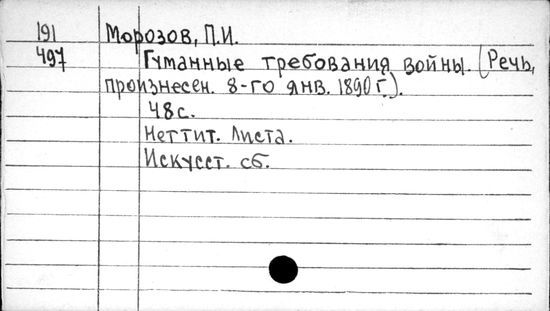 191 Морозов, П.И.
497 Гуманные требования войны. (Речь,
произнесен. 8-го янв. 1890 г.).
48 с.
Нет тит. листа.
Искусст. сб.